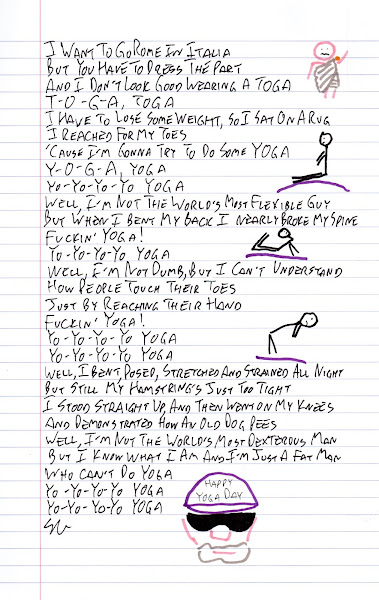 I Want To Go Rome In Italia
But You Have To Dress The Part
And I Don't Look Good Wearing A Toga
T-O-G-A, Toga
I Have To Lose Some Weight, So I Sat On A Rug
I Reached For My Toes
'Cause I'm Gonna Try To Do Some Yoga
Y-O-G-A, Yoga
Yo-Yo-Yo-Yo Yoga
Well, I'm Not The World's Most Flexible Guy
But When I Bent My Back I Nearly Broke My Spine
Fuckin' Yoga!
Yo-Yo-Yo-Yo Yoga
Well, I'm Not Dumb, But I Can't Understand
How People Touch Their Toes
Just By Reaching Their Hand
Fuckin' Yoga!
Yo-Yo-Yo-Yo Yoga
Yo-Yo-Yo-Yo Yoga
Well, I Bent, Posed, Stretched And Strained All Night
But Still My Hamstring's Just Too Tight
I Stood Straight Up And Then Went On My Knees
And Demonstrated How An Old Dog Pees
Well, I'm Not The World's Most Dexterous Man
But I Know What I Am And I'm Just A Fat Man
Who Can't Do Yoga
Yo-Yo-Yo-Yo Yoga
Yo-Yo-Yo-Yo Yoga
Happy
Yoga Day